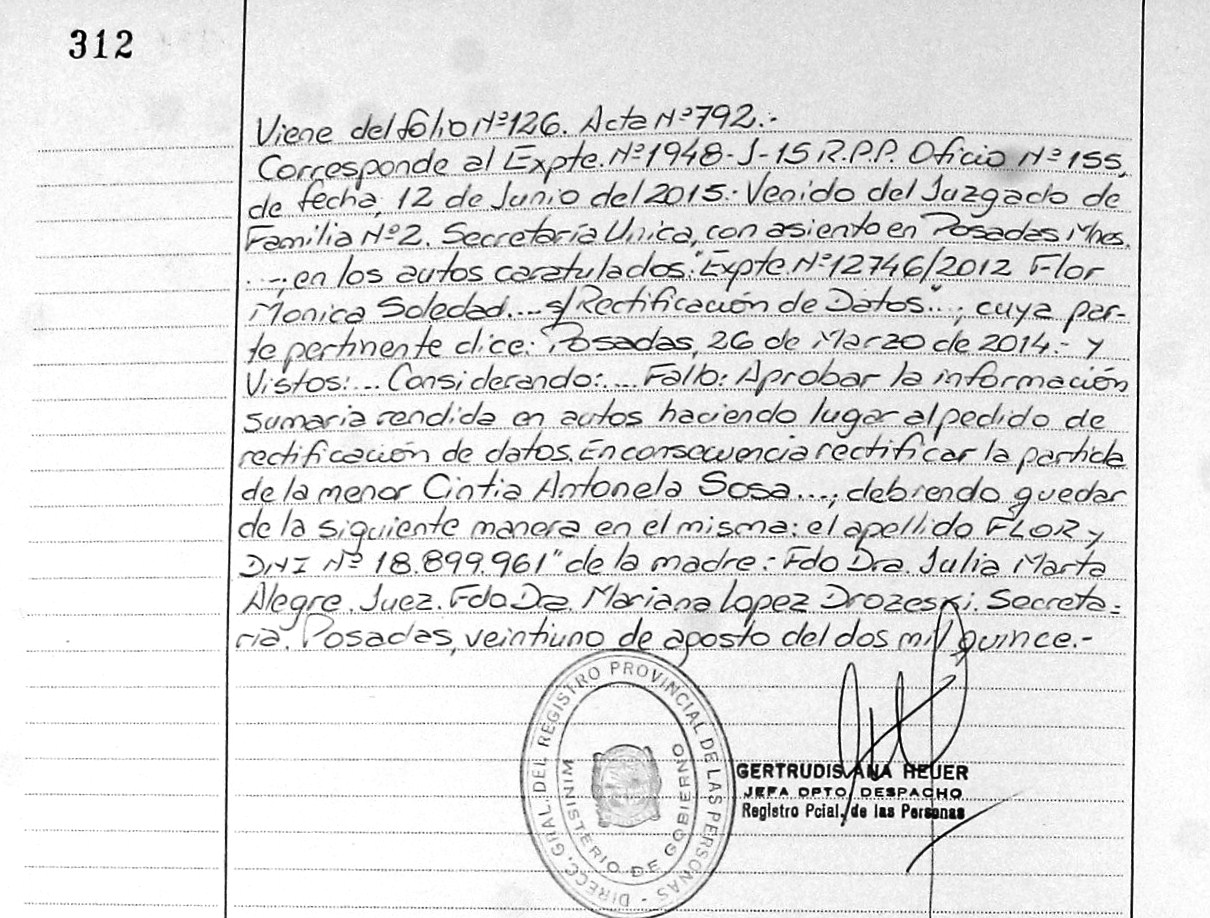 312
Viene del folio Nº126. Acta Nº792.-
Corresponde al Expte. Nº1948-J-15 R.P.P. Oficio Nº155,
de fecha, 12 de Junio del 2015.- Venido del Juzgado de
Familia Nº2. Secretaría Unica, con asiento en Posadas Mnes.
...; en los autos caratulados: "Expte. Nº12746/2012 Flor
Monica Soledad.... s/Rectificación de Datos"...; cuya par-
te pertinente dice: Posadas, 26 de Marzo de 2014.- y
Vistos:... Considerando:... Fallo: Aprobar la información
sumaria rendida en autos haciendo lugar al pedido de
rectificación de datos. En consecuencia rectificar la partida
de la menor Cintia Antonela Sosa...; debiendo quedar
de la siguiente manera en el misma: el apellido FLOR y
DNI Nº 18.899.961" de la madre.- Fdo Dra. Julia Marta
Alegre. Juez. Fdo Dra. Mariana Lopez Drozeski. Secreta=
ria. Posadas, veintiuno de agosto del dos mil quince.-
DIRECC. GRAL. DEL REGISTRO PROVINCIAL DE LAS PERSONAS -
MINISTERIO DE GOBIERNO
GERTRUDIS ANA HEUER
JEFA DPTO. DESPACHO
Registro Pcial. de las Personas